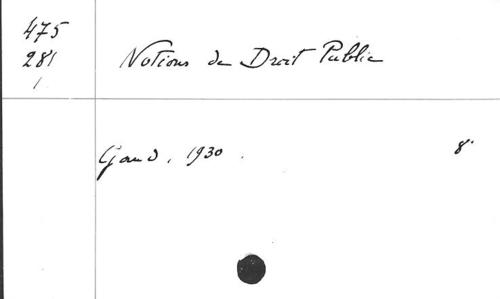 475
281
1
Notions de Droit Public
Gand, 1930.
8°